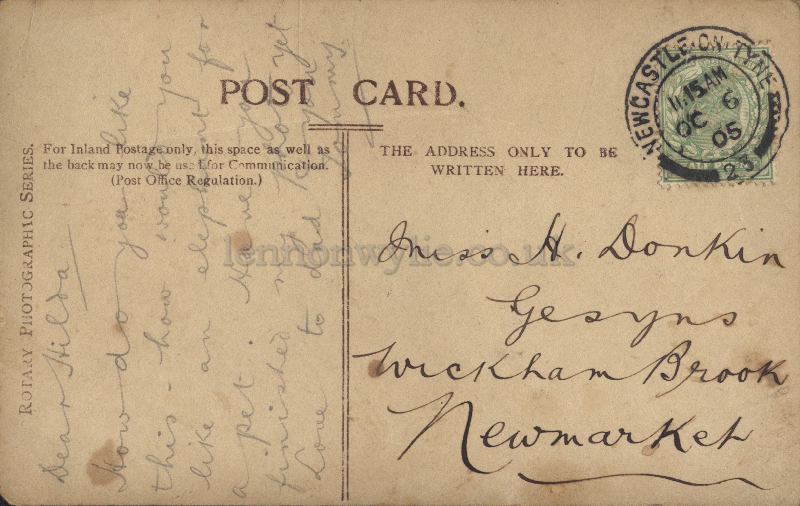 POST CARD.
ROTARY PHOTOGRAPHIC SERIES.
For Inland Postage only, this space as well as
the back may now be used for Communication.
(Post Office Regulation.)
THE ADDRESS ONLY TO BE
WRITTEN HERE.
NEWCASTLE-ON-TYNE
11.15AM
OC 6
05
23
Dear Hilda
How do you like
this - how would you
like an elephant for
a pet. Have you
finished my boat yet
Love to Dad & you
Tommy
Miss H. Donkin
Gesyns
Wickham Brook
Newmarket
lennonwylie.co.uk